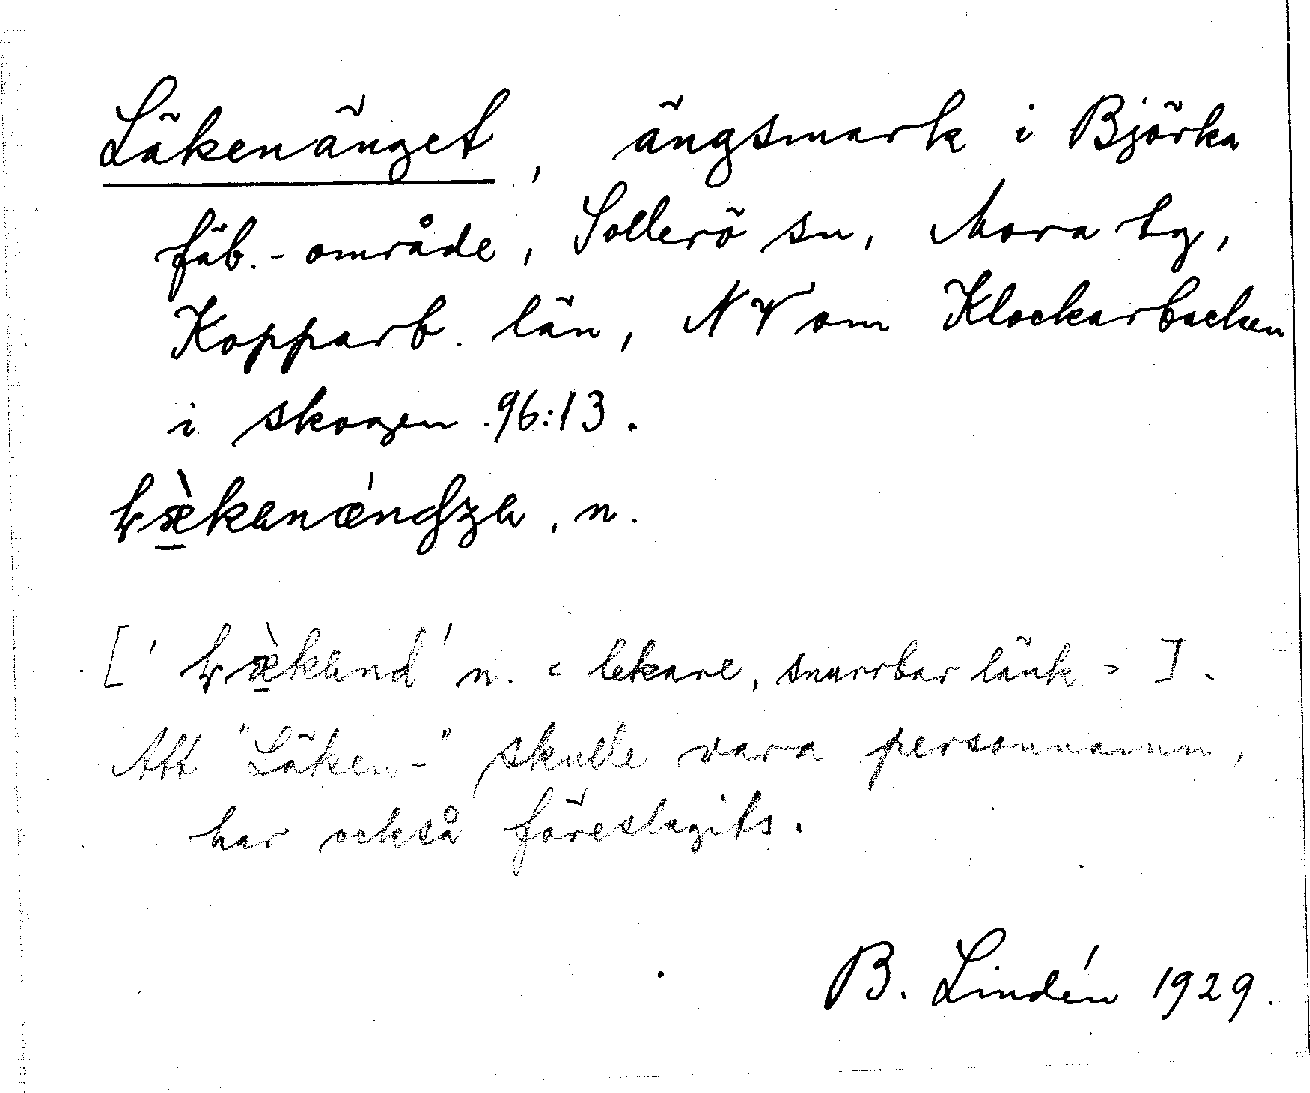 Läkenänget, ängsmark i Björka
fäb.-område, Sollerö sn, Mora tg,
Kopparb. län, NV om Klockarbacken
i skogen 96:13.
n.
[' ' n. = lekare, snurrbar länk = ].
Att "Läken-" skulle vara personnamn,
har också föreslagits.
B. Lindén 1929.